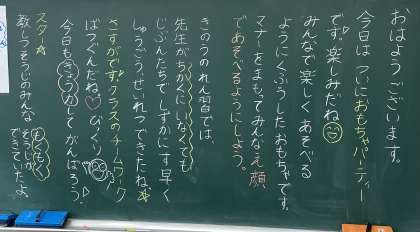 おはようございます。
今日は ついにおもちゃパーティー
です。楽しみだね
みんなで楽しく あそべる
ようにくふうしたおもちゃです。
マナーをまもってみんなえ顔
であそべるようにしよう。
きのうのれん習では、
先生がちかくにいなくても
じぶんたちでしずかにす早く
しゅうごう、せいれつできたね
さすがです。クラスのチームワーク
ばつぐんだね♡びっくり
今日もきょう力してがんばろう♪
スター☆
教しつそうじのみんな
もくもく
そうじが
できていたよ。